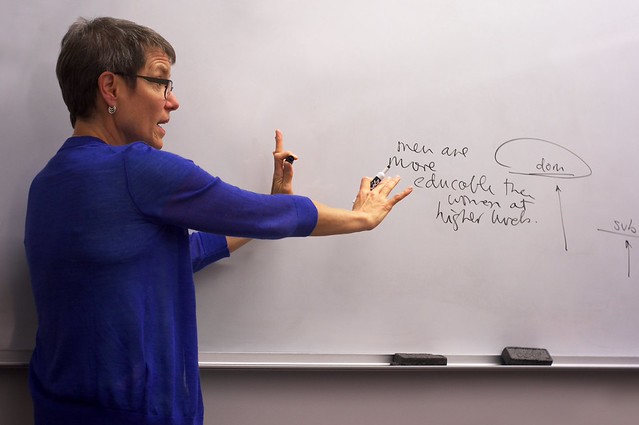 men are
more
educable then
women at
higher levels.
dom
sub